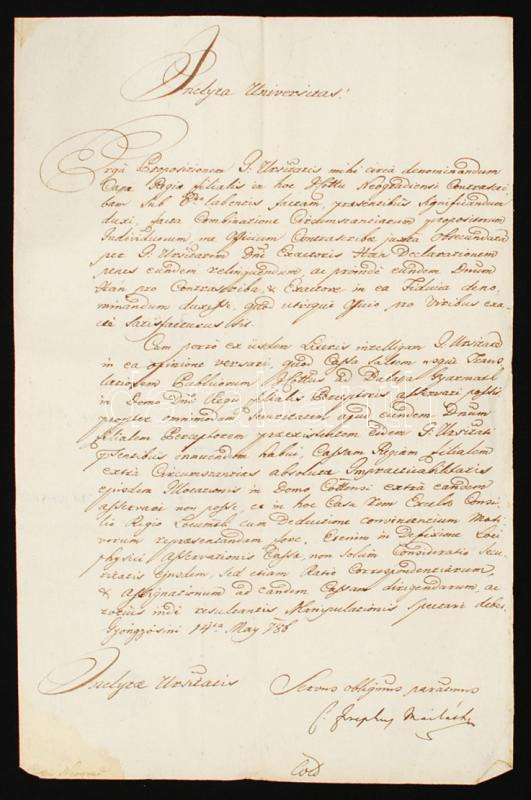 Inclyta Universitas!
Ergà Propositionem I. Ursitatis mihi circà denominandum
Regio filialis in hoc Cottu Neogradiensi Contrascri
bam sub labentis factam, praesentibus significandum
duxi, facta Combinatione Circumstanciarum propositorum
Individuorum, me Officium Contrascribae juxta
per I. Ursitatem Dni Exactoris Declarationem
penes eundem relinquendum, ac proinde eundem Dnum
pro Contrascriba & Exactore in ea Fiducia deno
minandum duxisse, quod utrique Officio pro Viribus exa
cte satisfacturus sit.
Cum porro ex iisdem Literis intelligam I. Ursitatem
in ea opinione versari, quod Cassa saltem usque Trans
lationem Cottus ad Balassa Gyarmath
in Domo Dni Regii filialis Perceptoris asservari possit,
propter commodam securitatem apud eundem Dnum
filialem Perceptorem praeexistentem eidem I. Ursitati
innuendum habui, Cassam Regiam filialem
extra Circumstancias absolutae Impracticabilitatis
ejusdem Locationis in Domo Cottensi extra eandem
asservari non posse, ac in hoc Casu Rem Excelso Consi
lio Regio Locumtli cum Deductione convincentium Moti
vorum repraesentandam fore. Etenim in Defixione Loci
physici asservationis Cassae, non solum Consideratio Secu
ritatis ejusdem, sed etiam Ratio Correspondentiarum,
& assignationum ad eandem Cassam dirigendarum, ac
totius inde resultantis Manipulationis spectari debet.
Gyöngyösini 14ta May 786
Inclytae Ursitatis
Servus obligmus paratmus
C. Josephus Mailáth
darabanth